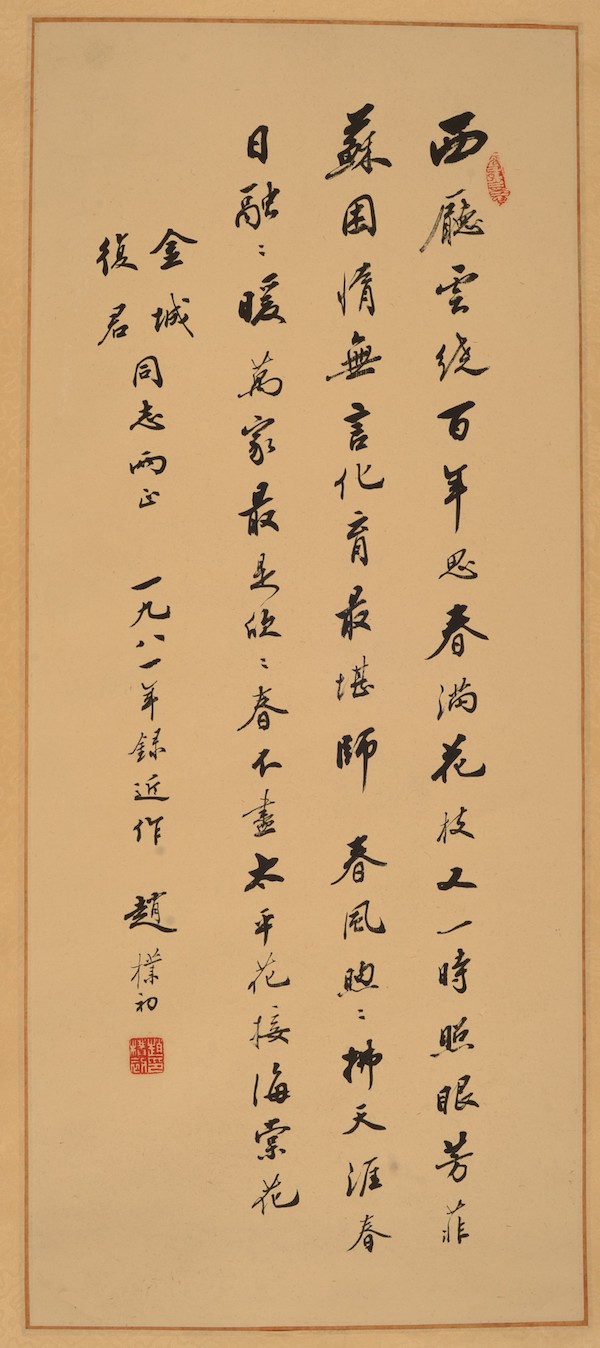 西廳雲繞百年思春滿花枝又一時照眼芳菲
蘇困惰無言化育最堪師 春風煦〻拂天涯春
日融〻暖萬家最是欣〻春不盡太平花接海棠花
金城
復君
同志兩正 一九八一年錄近作 趙樸初
趙樸初印